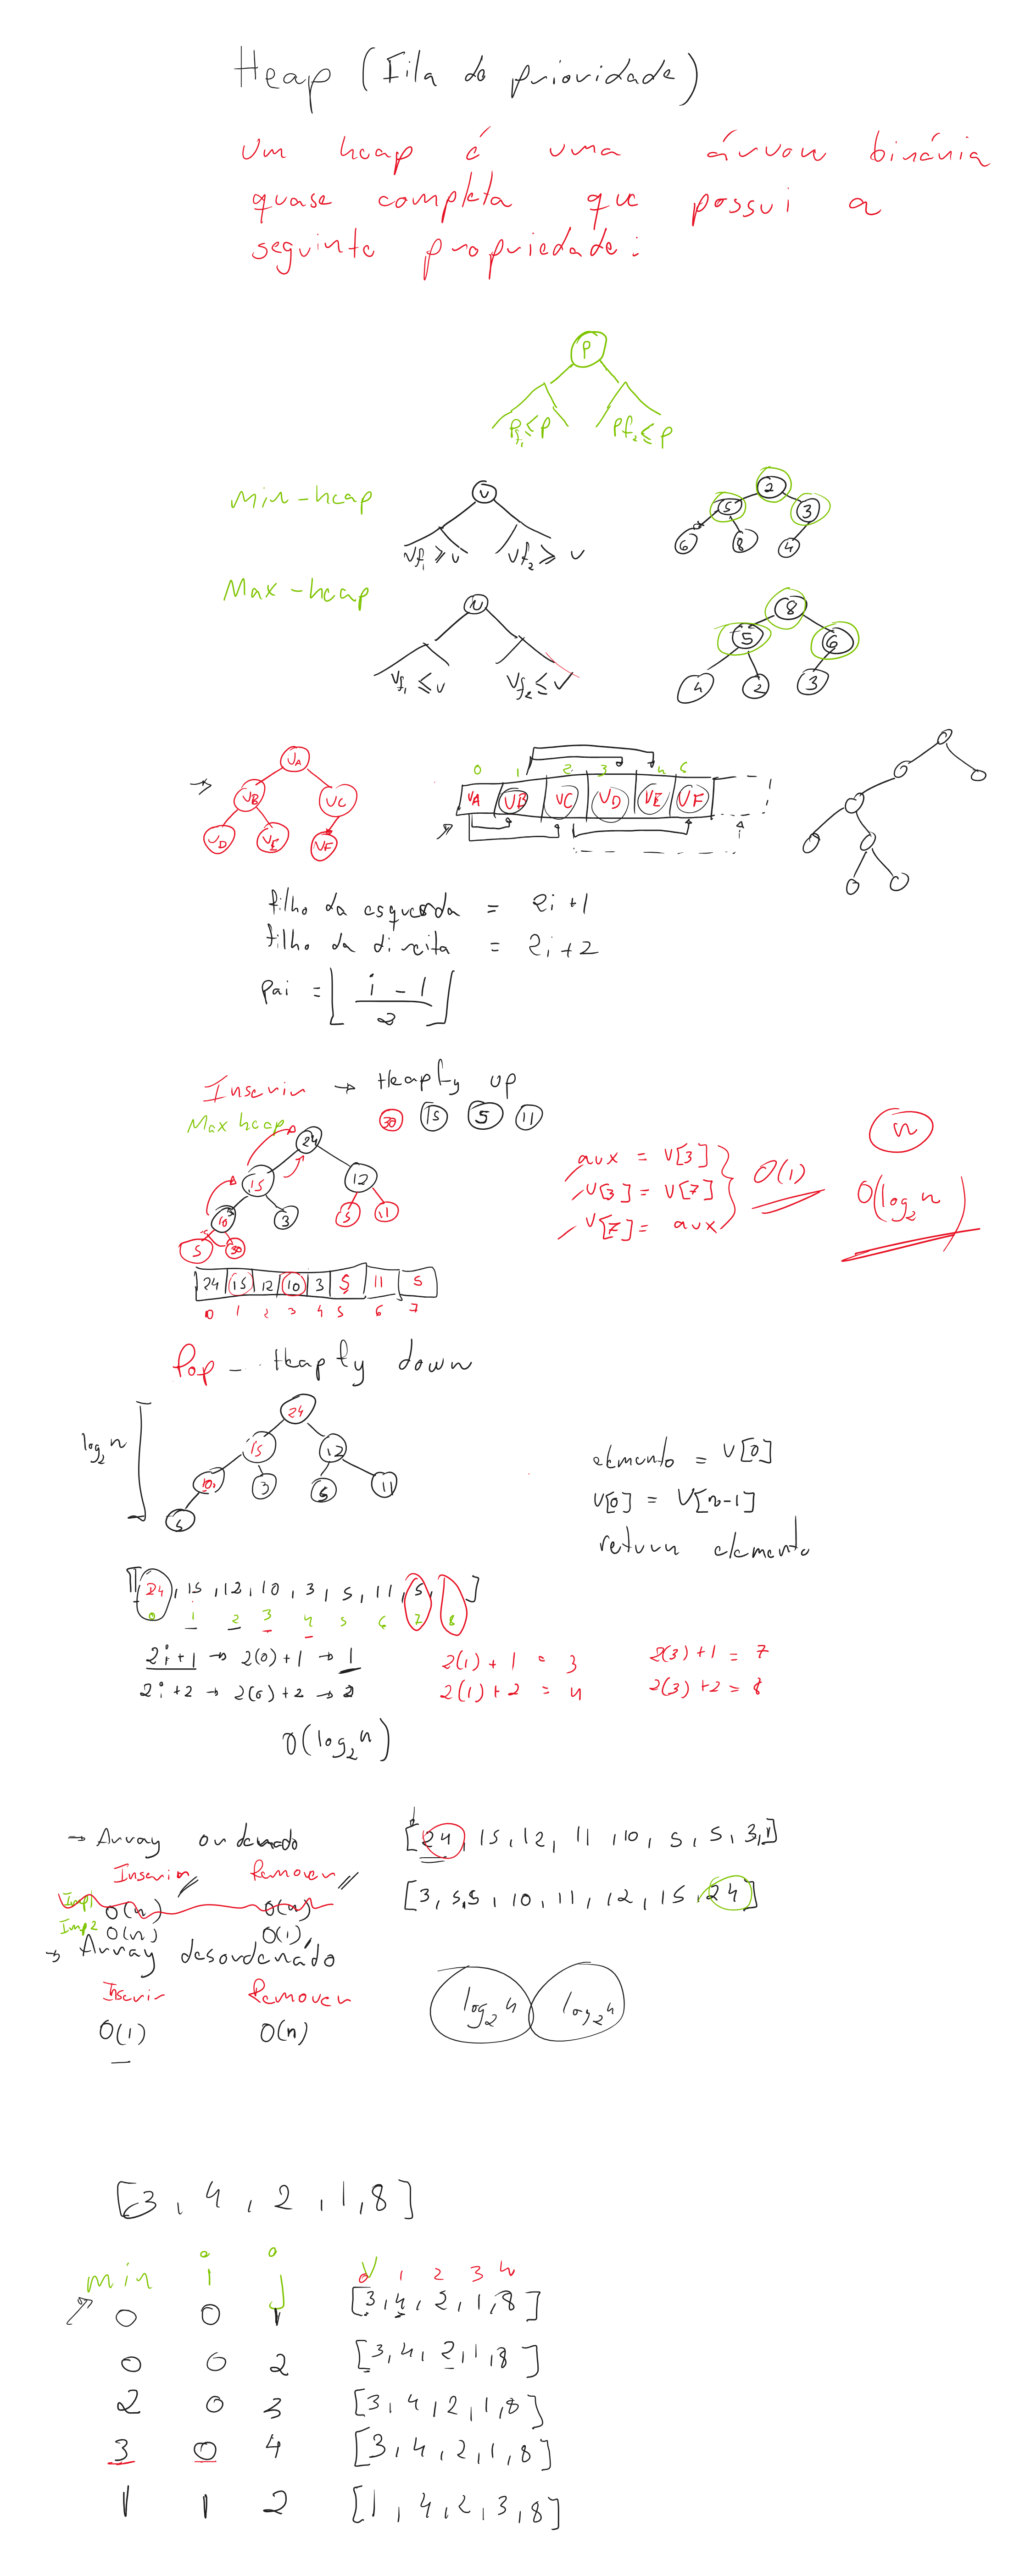 Heap (Fila de prioridade)
Um heap é uma árvore binária
quase completa que possui a
seguinte propriedade:
P
Pf₁ ≤ P Pf₂ ≤ P
Min-heap
v
Vf₁ ≥ v Vf₂ ≥ v
2
5 3
6 8 4
Max-heap
v
Vf₁ ≤ v Vf₂ ≤ v
8
5 6
4 2 3
VA
VB VC
VD VE VF
0 1 2 3 4 5
VA VB VC VD VE VF
filho da esquerda = 2i+1
filho da direita = 2i+2
pai = ⌊(i-1)/2⌋
Inserir → Heapfy up
Max heap
30 15 5 11
24
15 12
10 3 5 11
5 30
24 15 12 10 3 5 11 5
0 1 2 3 4 5 6 7
aux = V[3]
V[3] = V[7]
V[7] = aux
O(1)
n
O(log₂n)
Pop - Heapfy down
log₂n
24
15 12
10 3 5 11
5
elemento = V[0]
V[0] = V[n-1]
return elemento
[24, 15, 12, 10, 3, 5, 11, 5, ]
0 1 2 3 4 5 6 7 8
2i+1 → 2(0)+1 → 1
2i+2 → 2(0)+2 → 2
2(1)+1 = 3
2(1)+2 = 4
2(3)+1 = 7
2(3)+2 = 8
O(log₂n)
→ Array ordenado
Inserir Remover
Imp1 O(n) O(n)
Imp2 O(n) O(1)
[24, 15, 12, 11, 10, 5, 5, 3, ]
[3, 5, 5, 10, 11, 12, 15, 24]
→ Array desordenado
Inserir Remover
O(1) O(n)
log₂n log₂n
[3, 4, 2, 1, 8]
min i j
0 1 2 3 4
0 0 1 [3, 4, 2, 1, 8]
0 0 2 [3, 4, 2, 1, 8]
2 0 3 [3, 4, 2, 1, 8]
3 0 4 [3, 4, 2, 1, 8]
1 1 2 [1, 4, 2, 3, 8]